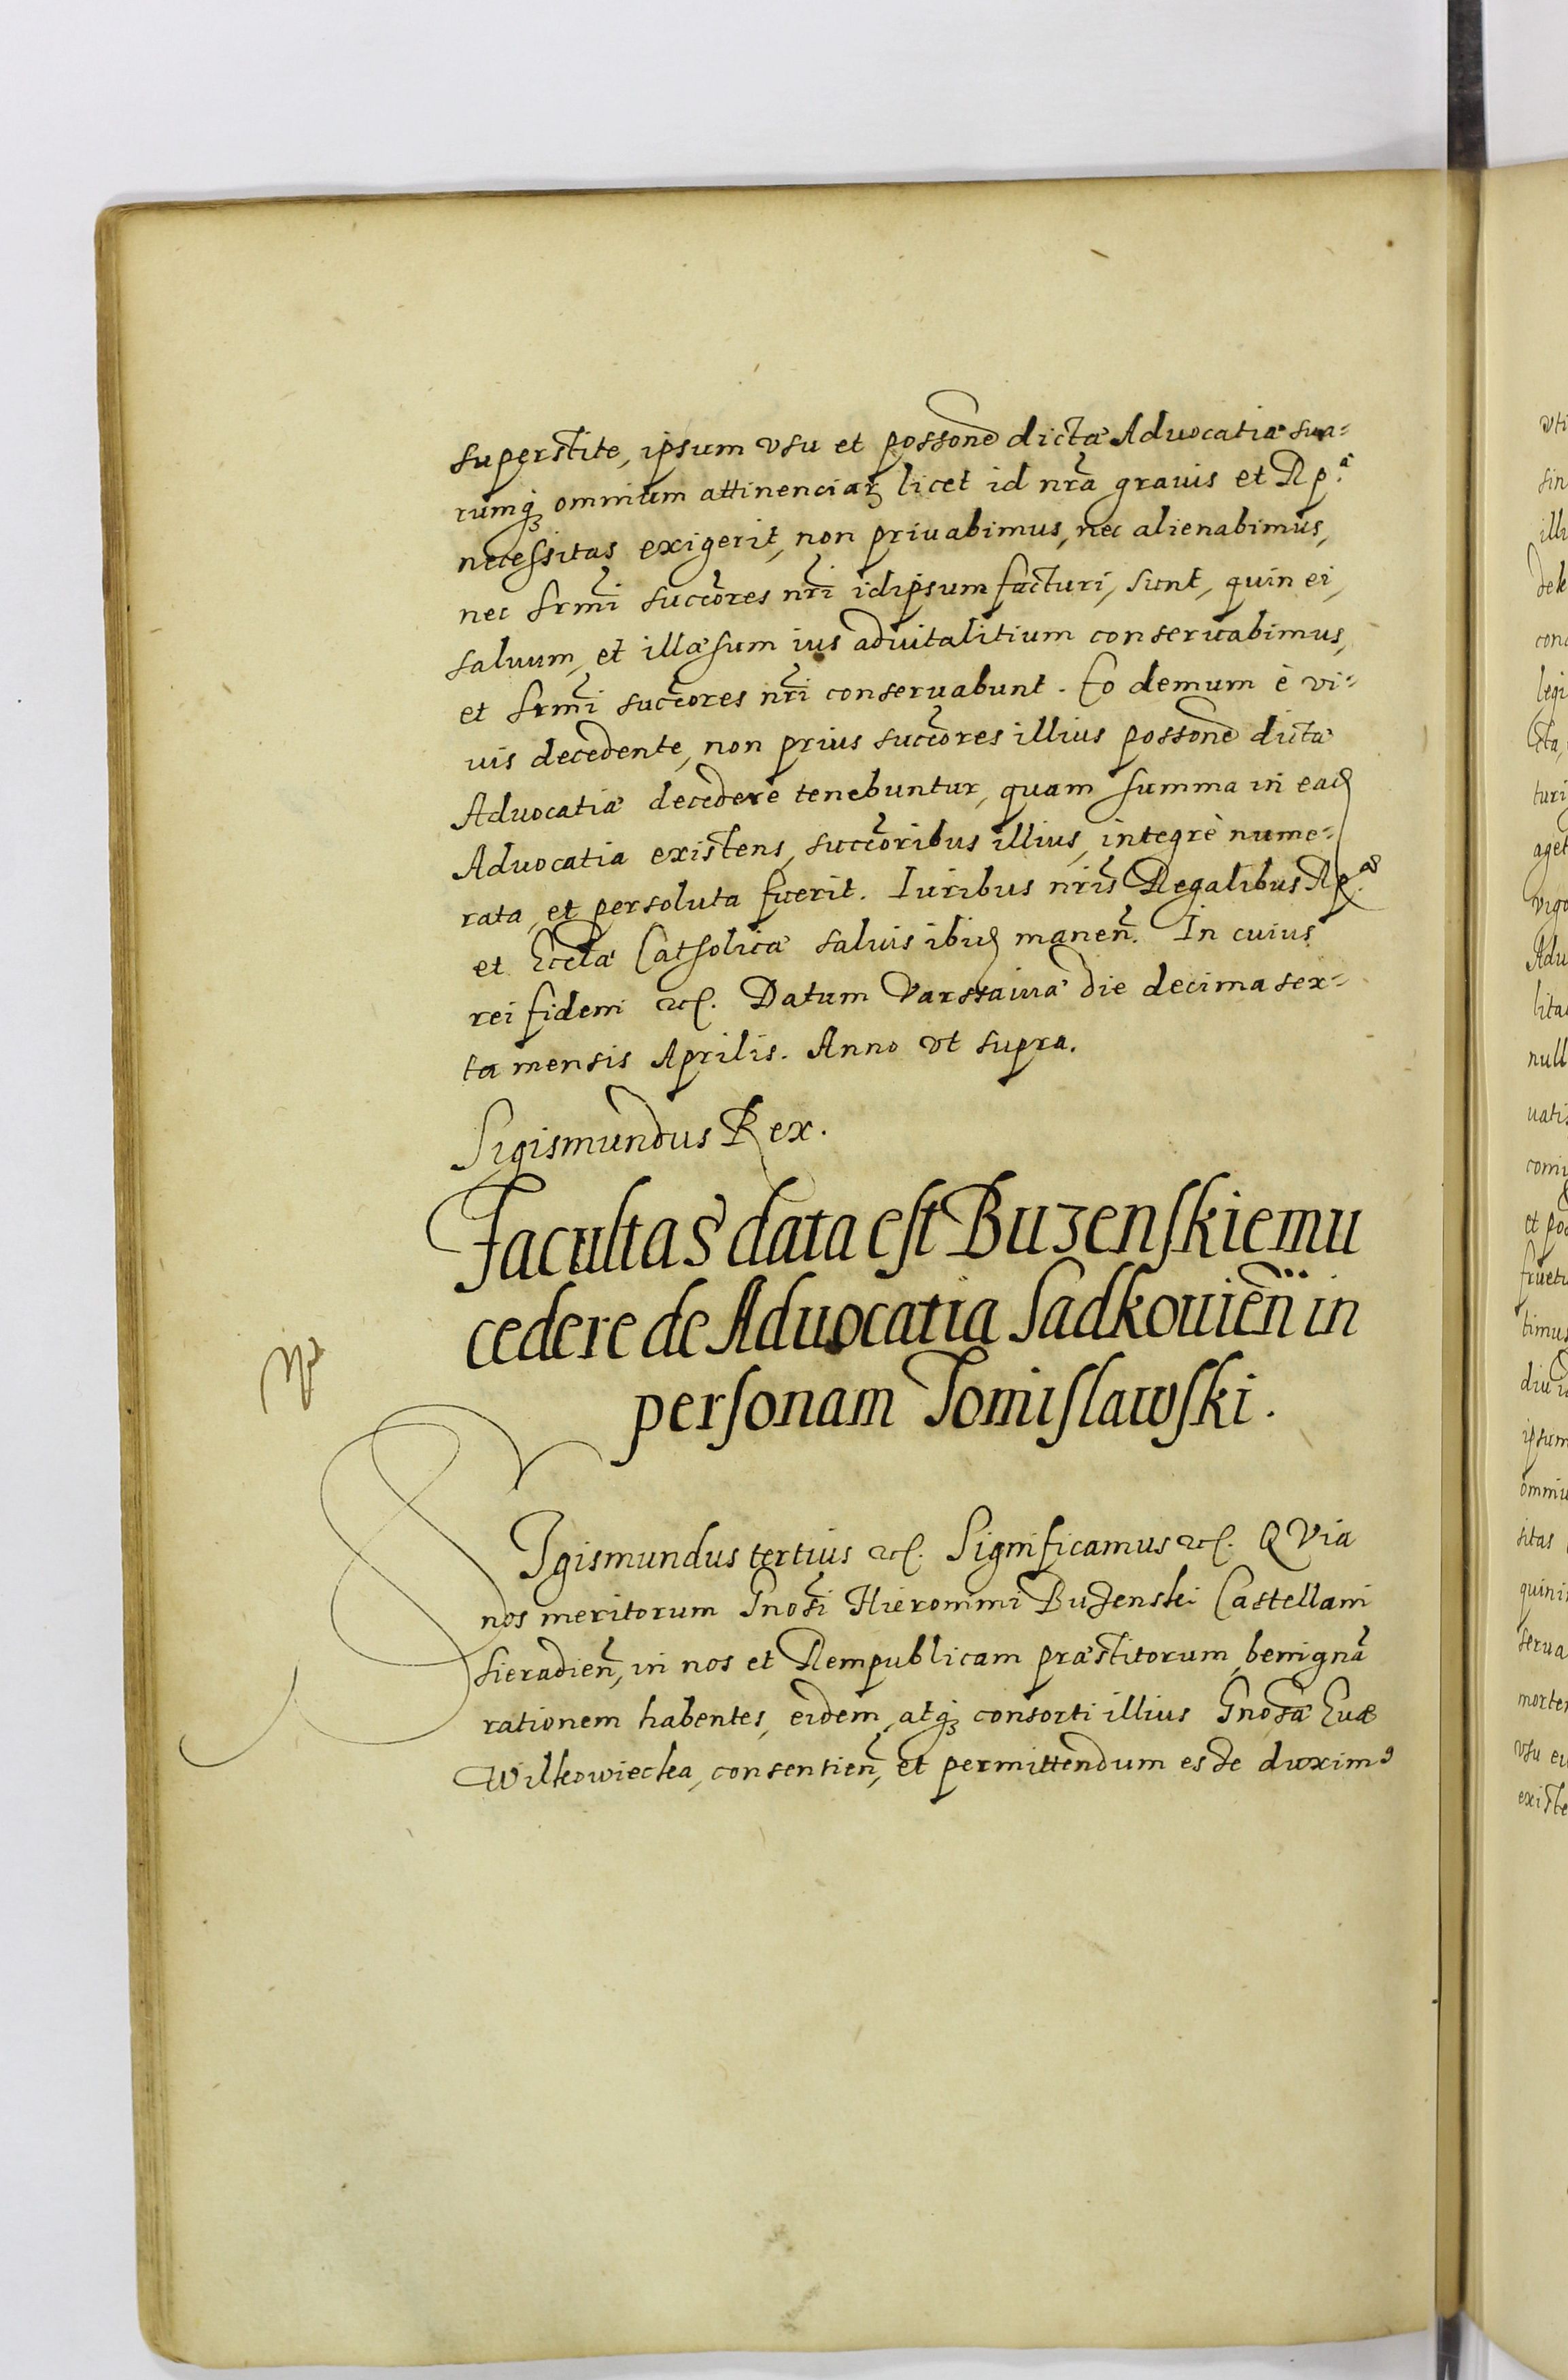 superstite, ipsum vsu et possone dictæ Aduocatiæ sua=
rumq₃ omnium attinenciarꝫ licet id nra grauis et Rp.ᵃ
necessitas exigerit, non priuabimus, nec alienabimus,
nec srmi succores nri idipsum facturi, sunt, quin ei,
saluum, et illæsum ius aduitalitium conseruabimus,
et srmi succores nri conseruabunt. Eo demum è vi=
uis decedente, non prius succores illius possone dictæ
Aduocatiæ decedere tenebuntur, quam summa in eadꝫ
Aduocatia existens, succoribus illius, integrè nume=
rata, et persoluta fuerit. Iuribus nris Regalibus Rp.
et Eccliæ Catholicæ saluis ibidꝫ manen̄. In cuius
rei fidem etc. Datum Varssauiæ die decima sex=
ta mensis Aprilis. Anno vt supra.
Sigismundus Rex.
Facultas data est Buzenskiemu
cedere de Aduocatia Sadkouien̄ in
personam Tomislawski.
SIgismundus tertius etc. Significamus etc. QVia
nos meritorum Gnosi Hieronimi Buzenski Castellani
Sieradien̄, in nos et Rempublicam præstitorum, benignā
rationem habentes, eidem, atq₃ consorti illius Gnosæ Euæ
Wilkowiecka, consentien̄, et permittendum esse duximꝰ
vti
sin
turi
aget
Adu
null
uatis
et po
fruct
timus
ipsum
omniu
sitas
serua
existe